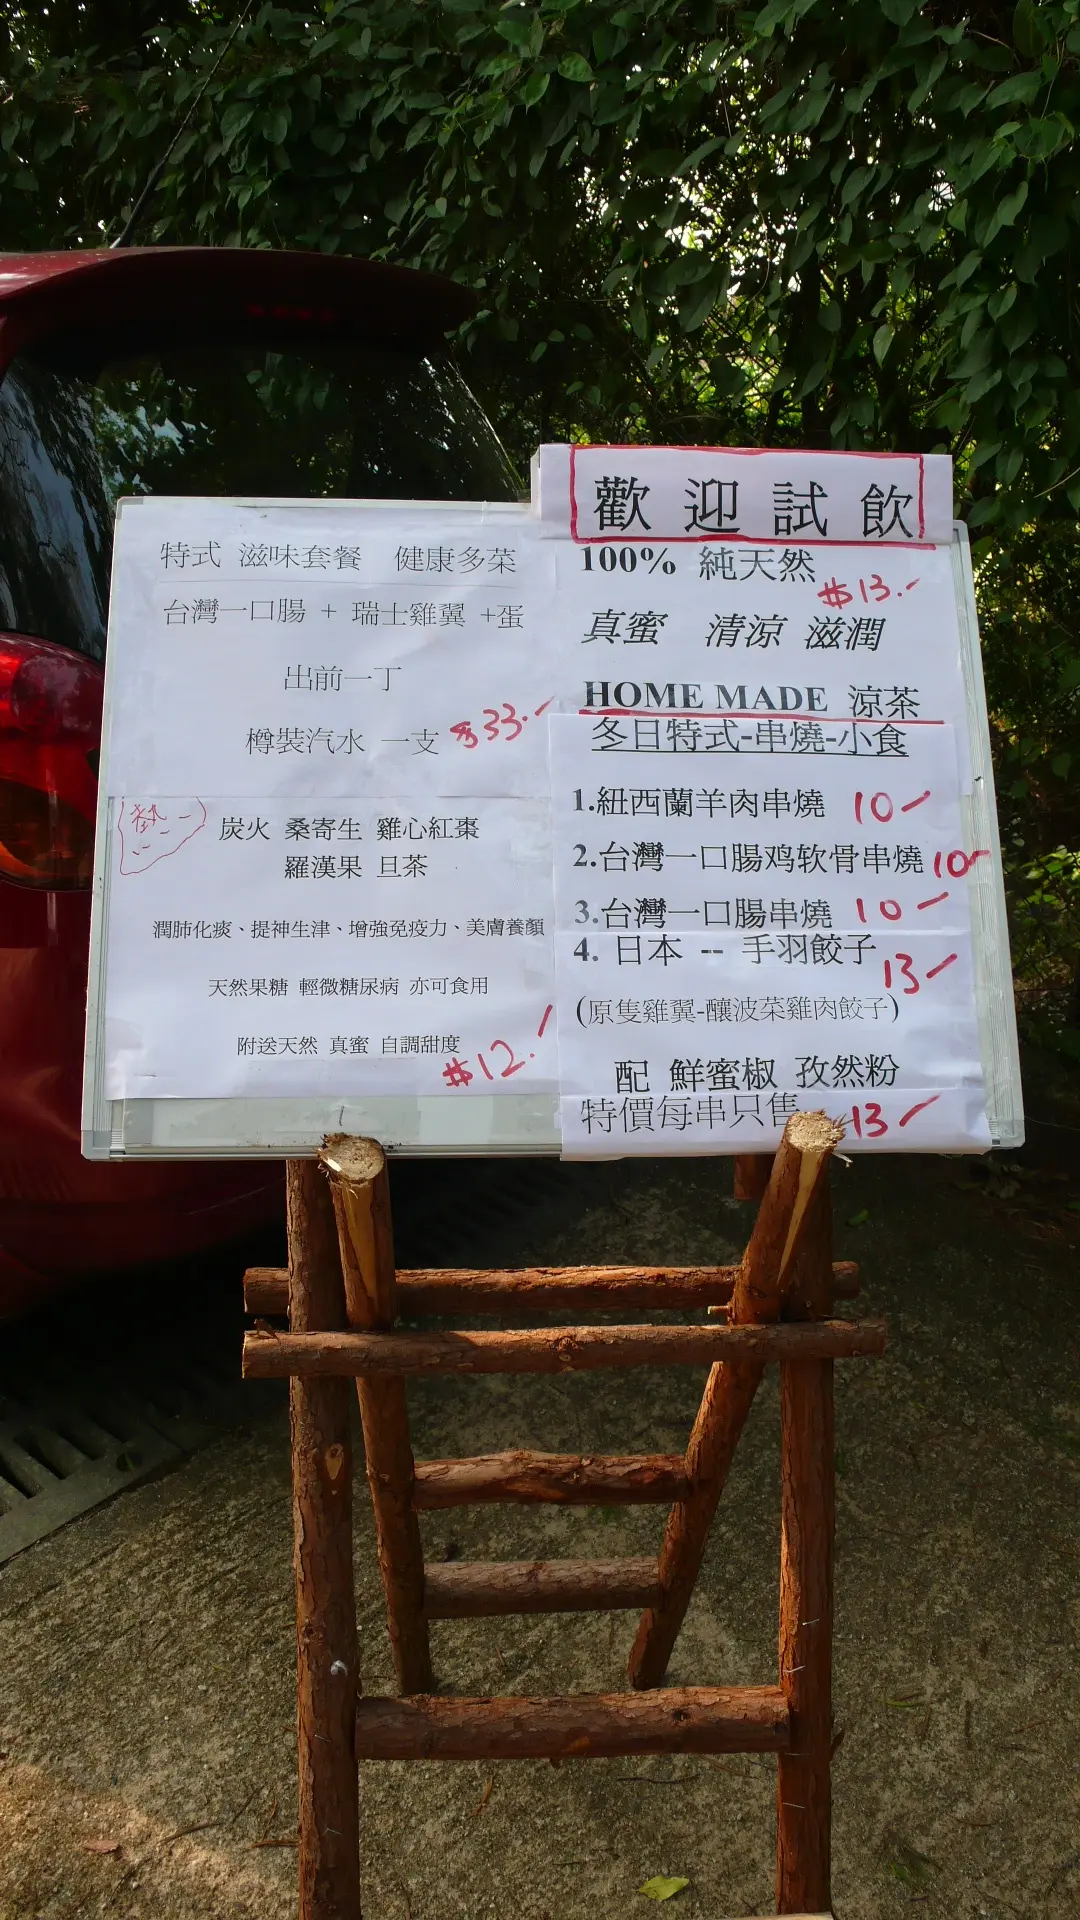 特式 滋味套餐 健康多菜
台灣一口腸 + 瑞士雞翼 +蛋
出前一丁
樽裝汽水 一支 $33.-
熱
炭火 桑寄生 雞心紅棗
羅漢果 旦茶
潤肺化痰、提神生津、增強免疫力、美膚養顏
天然果糖 輕微糖尿病 亦可食用
附送天然 真蜜 自調甜度
$12.-
歡迎試飲
100% 純天然
$13.-
真蜜 清涼 滋潤
HOME MADE 涼茶
冬日特式-串燒-小食
1.紐西蘭羊肉串燒 10-
2.台灣一口腸鸡软骨串燒 10-
3.台灣一口腸串燒 10-
4. 日本 -- 手羽餃子 13-
(原隻雞翼-釀波菜雞肉餃子)
配 鮮蜜椒 孜然粉
特價每串只售 13-